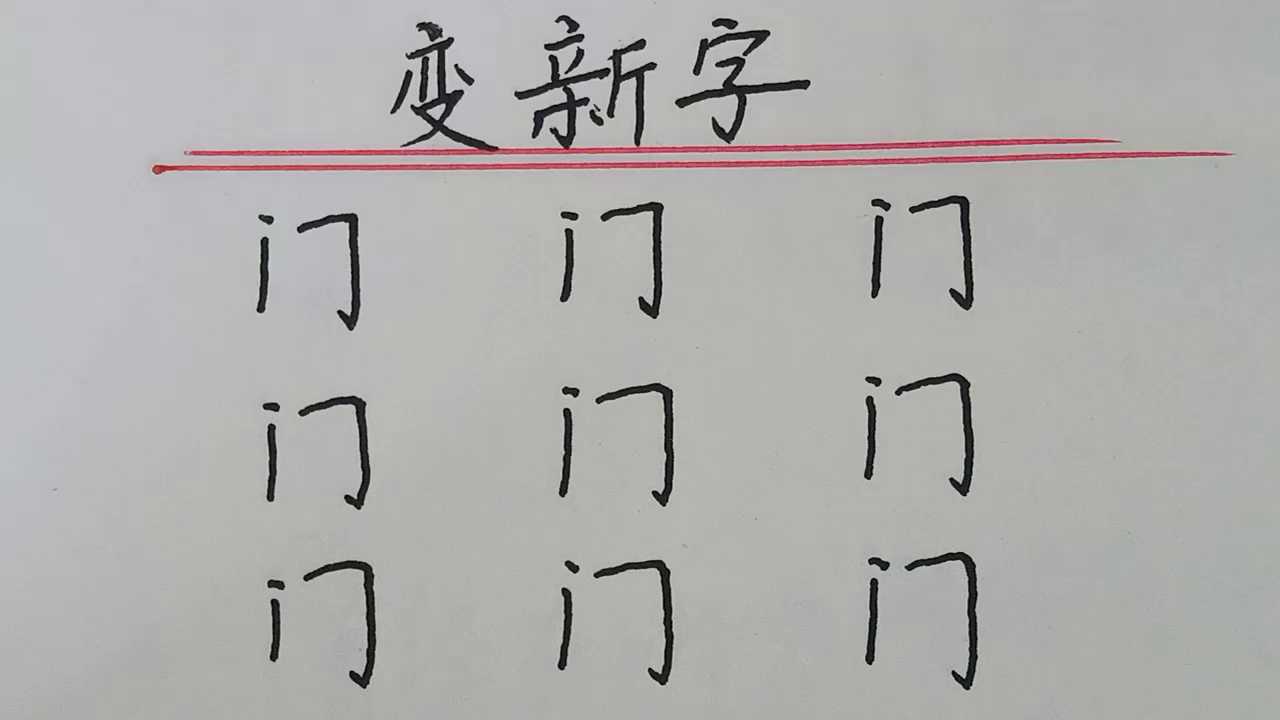 变新字
门 门 门
门 门 门
门 门 门